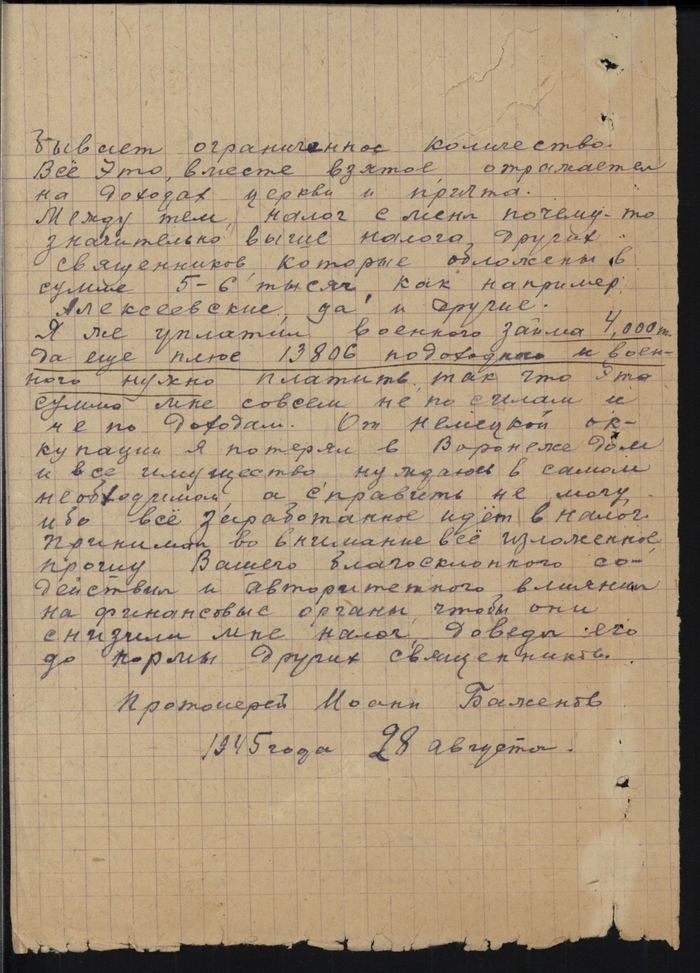 бывает ограниченное количество.
Всё это, вместе взятое отражается
на доходах церкви и причта.
Между тем, налог с меня почему-то
значительно выше налога других
священников, которые обложены в
сумме 5-6 тысяч, как например
Алексеевские, да и другие.
Я же уплатил военного займа 4,000 т.
да еще плюс 13806 подоходного и воен-
ного нужно платить, так что эта
сумма мне совсем не по силам и
не по доходам. От немецкой ок-
купации я потерял в Воронеже дом
и все имущество нуждаюсь в самом
необходимом, а справить не могу
ибо всё заработанное идёт в налог.
Принимая во внимание всё изложенное,
прошу Вашего благосклонного со-
действия и авторитетного влияния
на финансовые органы, чтобы они
снизили мне налог, доведя его
до нормы других священников.
Протоиерей Иоанн Баженов
1945 года 28 августа.